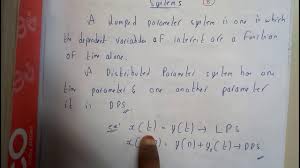 Systems
A Lumped parameter system is one in which
the dependent variables of interest are a function
of time alone.
A Distributed Parameter system has one
time parameter & one another parameter
it is DPS
x(t) = y(t) → LPS
= y(n) + y(t) → DPS